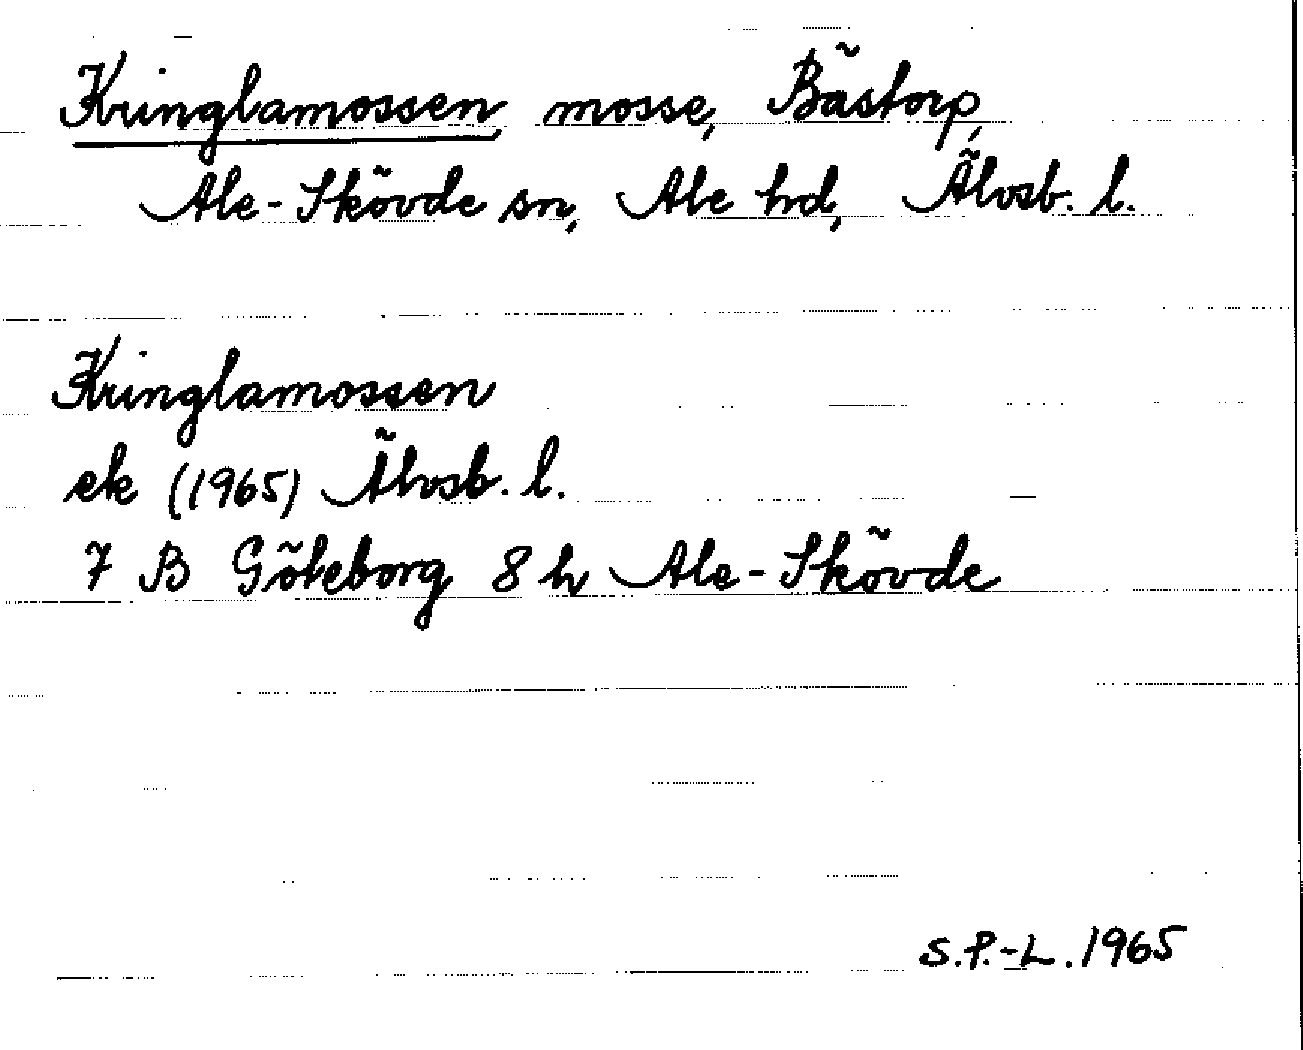 Kringlamossen, mosse, Bästorp,
Ale-Skövde sn, Ale hd, Älvsb. l.
Kringlamossen
ek (1965) Älvsb. l.
7 B Göteborg 8 h Ale-Skövde
S.P.-L. 1965